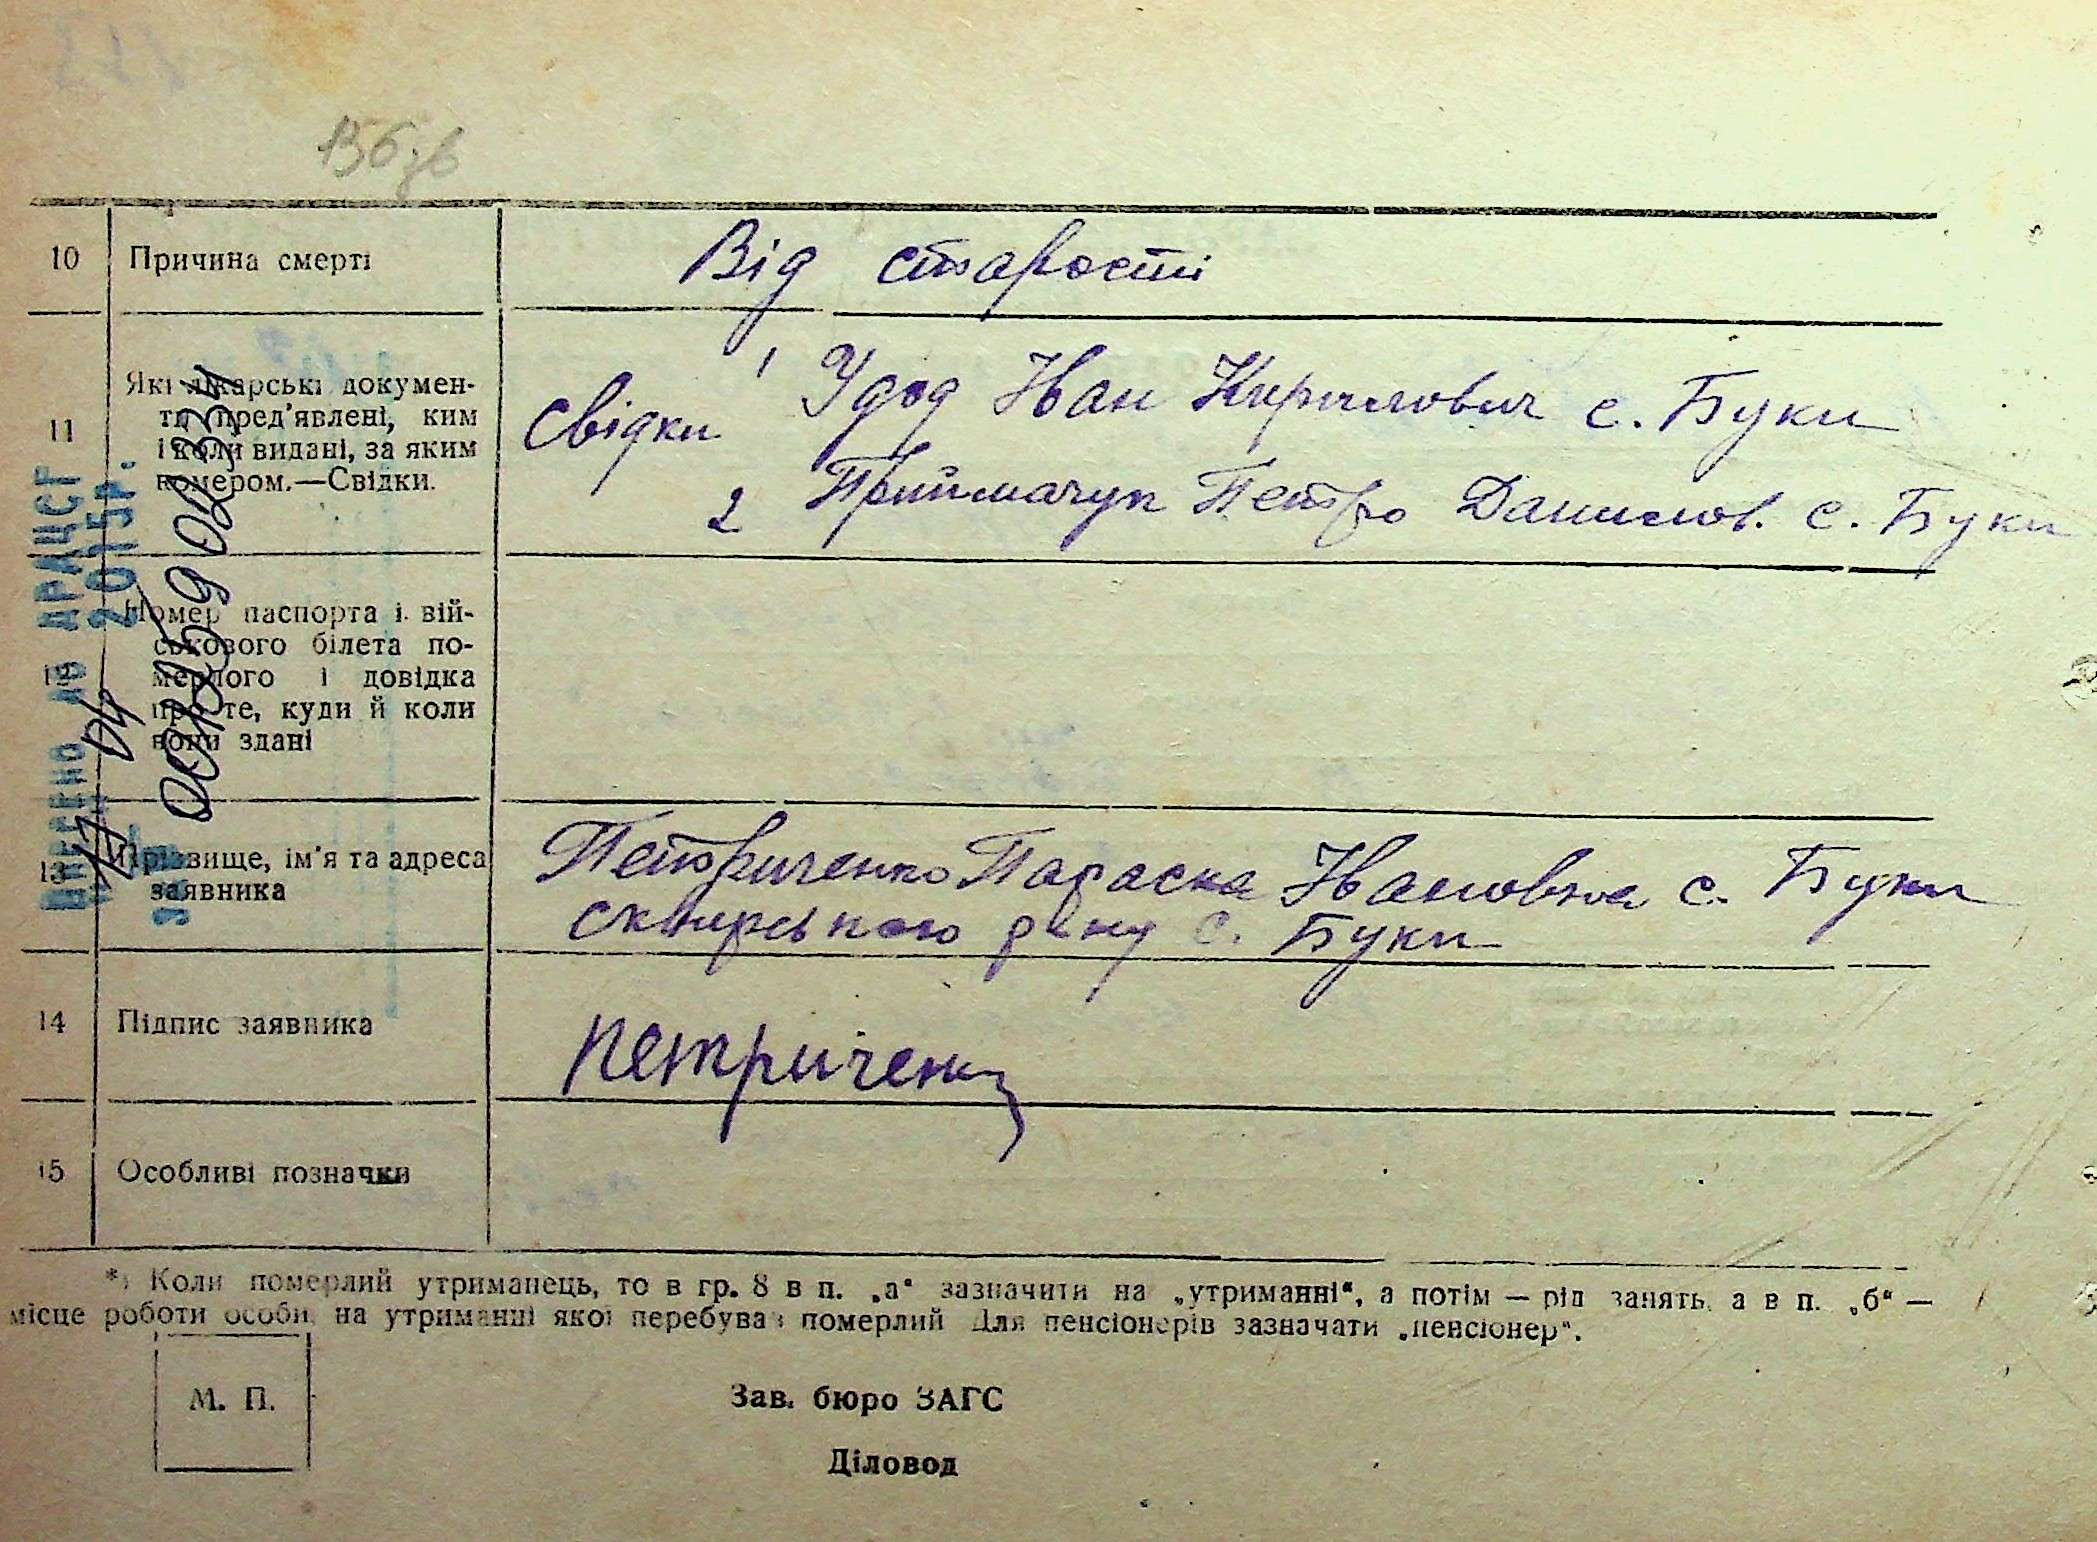 10 Причина смерті Від старости
11 Які лікарські документи пред'явлені, ким і коли видані, за яким номером.—Свідки.
Свідки 1 Удод Іван Кирилович с. Буки
2 Приймачук Петро Данилов. с. Буки
12 Номер паспорта і вій-
ськового білета по-
мерлого і довідка
про те, куди й коли
вони здані
13 Прізвище, ім'я та адреса
заявника
Петриченко Параска Івановна с. Буки
сквирського р-ну с. Буки
14 Підпис заявника Петриченко
15 Особливі позначки
*) Коли померлий утриманець, то в гр. 8 в п. „а“ зазначити на „утриманні“, а потім — рід занять, а в п. „б“ —
місце роботи особи, на утриманні якої перебував померлий. Для пенсіонерів зазначати „пенсіонер“.
М. П.
Зав. бюро ЗАГС
Діловод
ВНЕСЕНО ДО ДРАЦСГ
17 04 2015р.
за № 00135902334